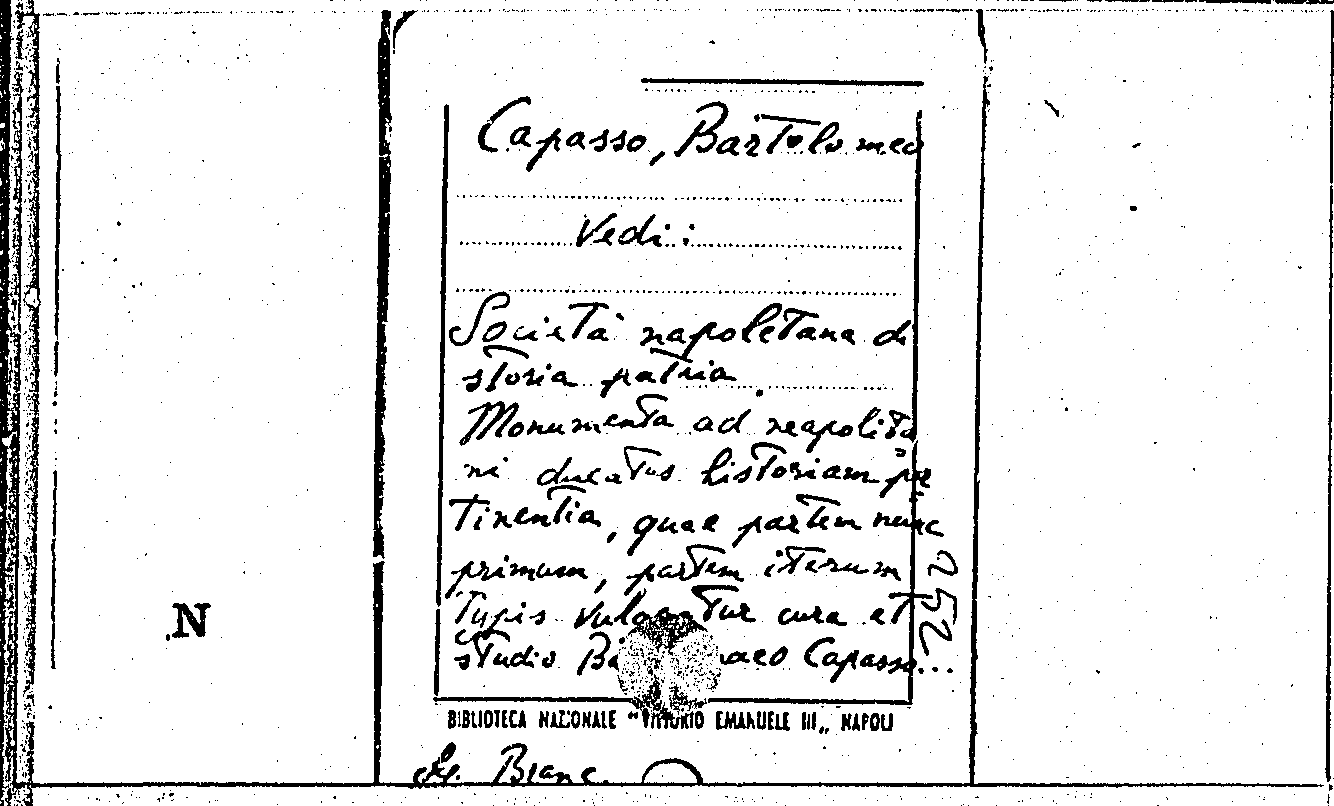 Capasso, Bartolomeo
Vedi:
Società napoletana di
storia patria.
Monumenta ad neapolita
ni ducatus historiam per
tinentia, quae partem nunc
primum, partem iterum
typis vulgantur cura et
studio Capasso...
252
N
BIBLIOTECA NAZIONALE "VITTORIO EMANUELE III„ NAPOLI
Branc.